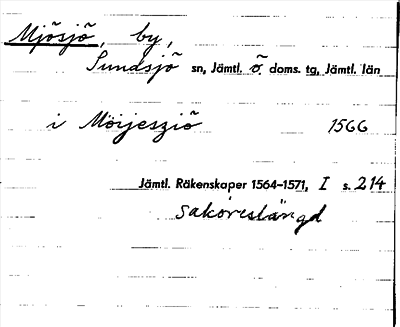 Mjösjö, by,
Sundsjö sn, Jämtl. ö. doms. tg, Jämtl. län
i Möijesziö 1566
Jämtl. Räkenskaper 1564–1571, I s. 214
Saköreslängd